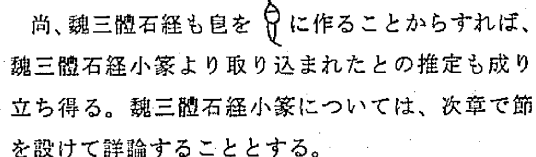 尚、魏三體石経も皀を に作ることからすれば、
魏三體石経小篆より取り込まれたとの推定も成り
立ち得る。魏三體石経小篆については、次章で節
を設けて詳論することとする。